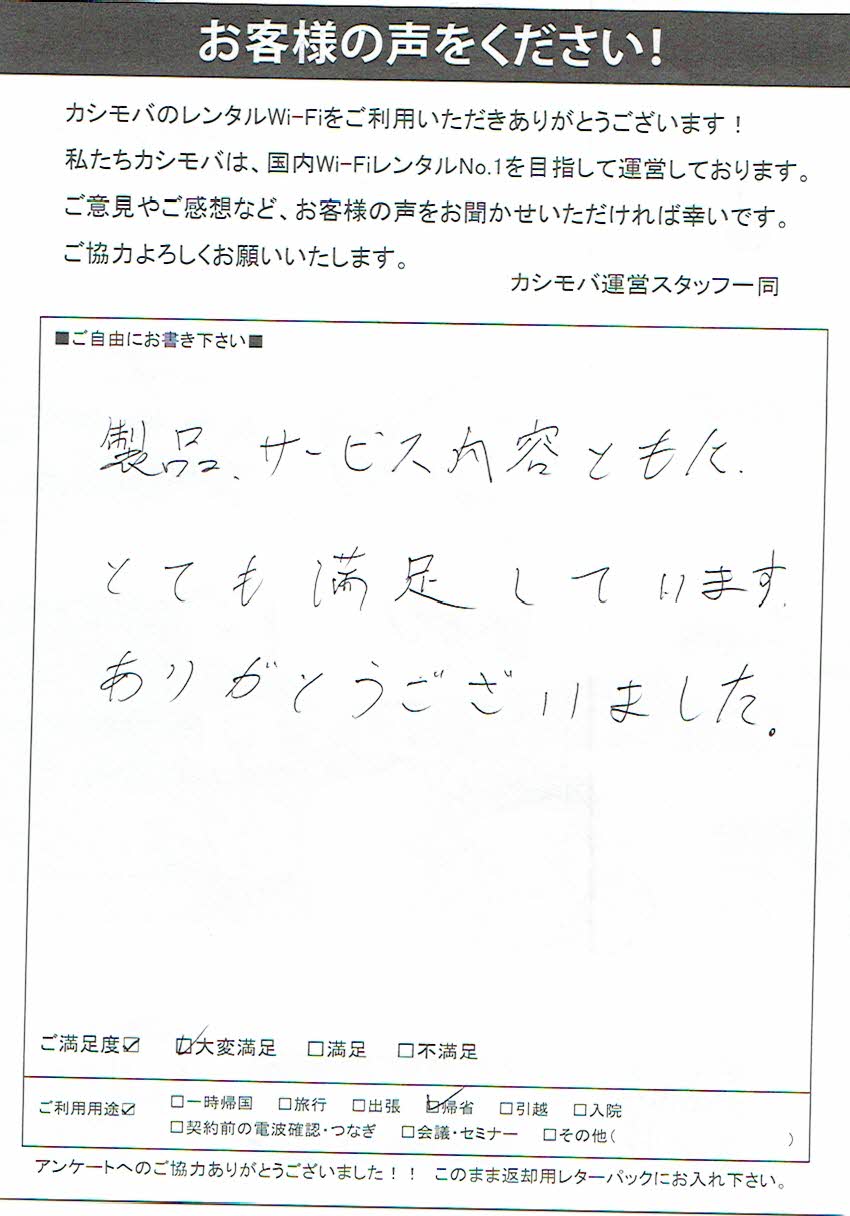 お客様の声をください!
カシモバのレンタルWi-Fiをご利用いただきありがとうございます!
私たちカシモバは、国内Wi-FiレンタルNo.1を目指して運営しております。
ご意見やご感想など、お客様の声をお聞かせいただければ幸いです。
ご協力よろしくお願いいたします。
カシモバ運営スタッフ一同
■ご自由にお書き下さい■
製品、サービス内容ともに、
とても満足しています。
ありがとうございました。
ご満足度☑ ☑大変満足 □満足 □不満足
ご利用用途☑ □一時帰国 □旅行 □出張 ☑帰省 □引越 □入院
□契約前の電波確認・つなぎ □会議・セミナー □その他( )
アンケートへのご協力ありがとうございました!! このまま返却用レターパックにお入れ下さい。